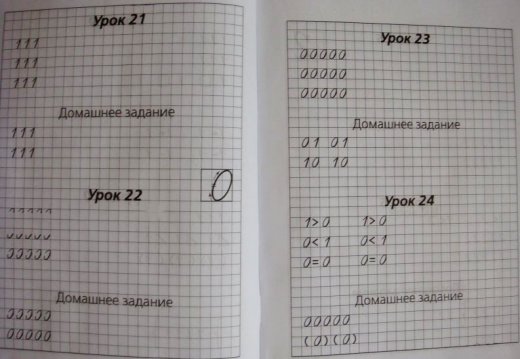 Урок 21
111
111
111
Домашнее задание
111
111
Урок 22
0
00000
00000
Домашнее задание
00000
00000
Урок 23
00000
00000
00000
Домашнее задание
01 01
10 10
Урок 24
1>0 1>0
0<1 0<1
0=0 0=0
Домашнее задание
00000
(0)(0)